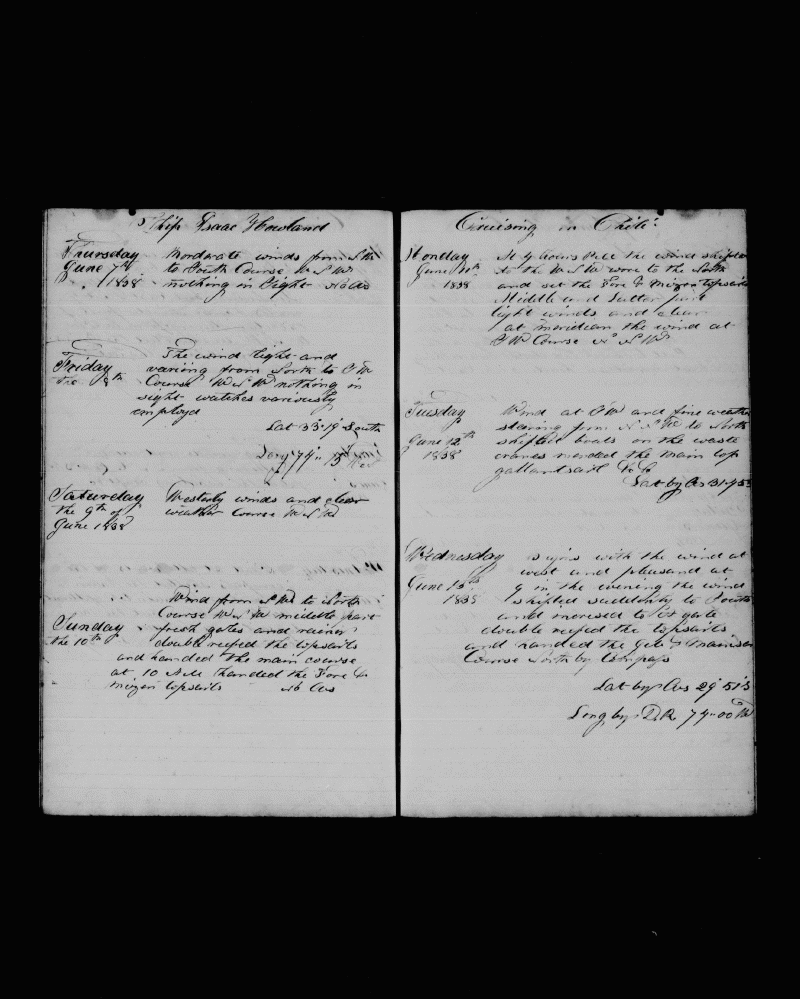 Ship Isaac Howland
Thursday
June 7th
1838
Mordwate winds from
to South Course W S W
nothing in Sight
Friday
the 8th
The wind light and
variing from North to S W
Course W S W nothing in
sight watches variously
employd
Lat 33"19 South
Long 79"
Saturday
the 9th of
June 1838
Westerly winds and clear
weather Course
Sunday
the 10th
Wind from to North
Course middle part
fresh gales and rainey
double reefed the topsails
and handed the main course
at 10 handed the Fore &
mizen topsails no Obs
Cruising in Chili
Monday
June 11th
1838
At 4 hours the wind shifted
to the W S W wore to the North
and set the Fore & Mizen topsails
Middle and Latter part
light winds and clear
at meridian the wind at
S W Course
Tuesday
June 12th
1838
Wind at S W and fine weather
stearing from to North
shifted boats on the waste
cranes mended the main top
gallandsail & C
Lat by Obs 31"45
Wednesday
June 13th
1838
Begins with the wind at
west and pleasand at
9 in the evening the wind
shifted suddenly to South
and incresed to a gale
double reefed the topsails
and handed the Gib & Mainsail
Course North by Compass
Lat by Obs 29"51 S
Long by D R 74"00 W